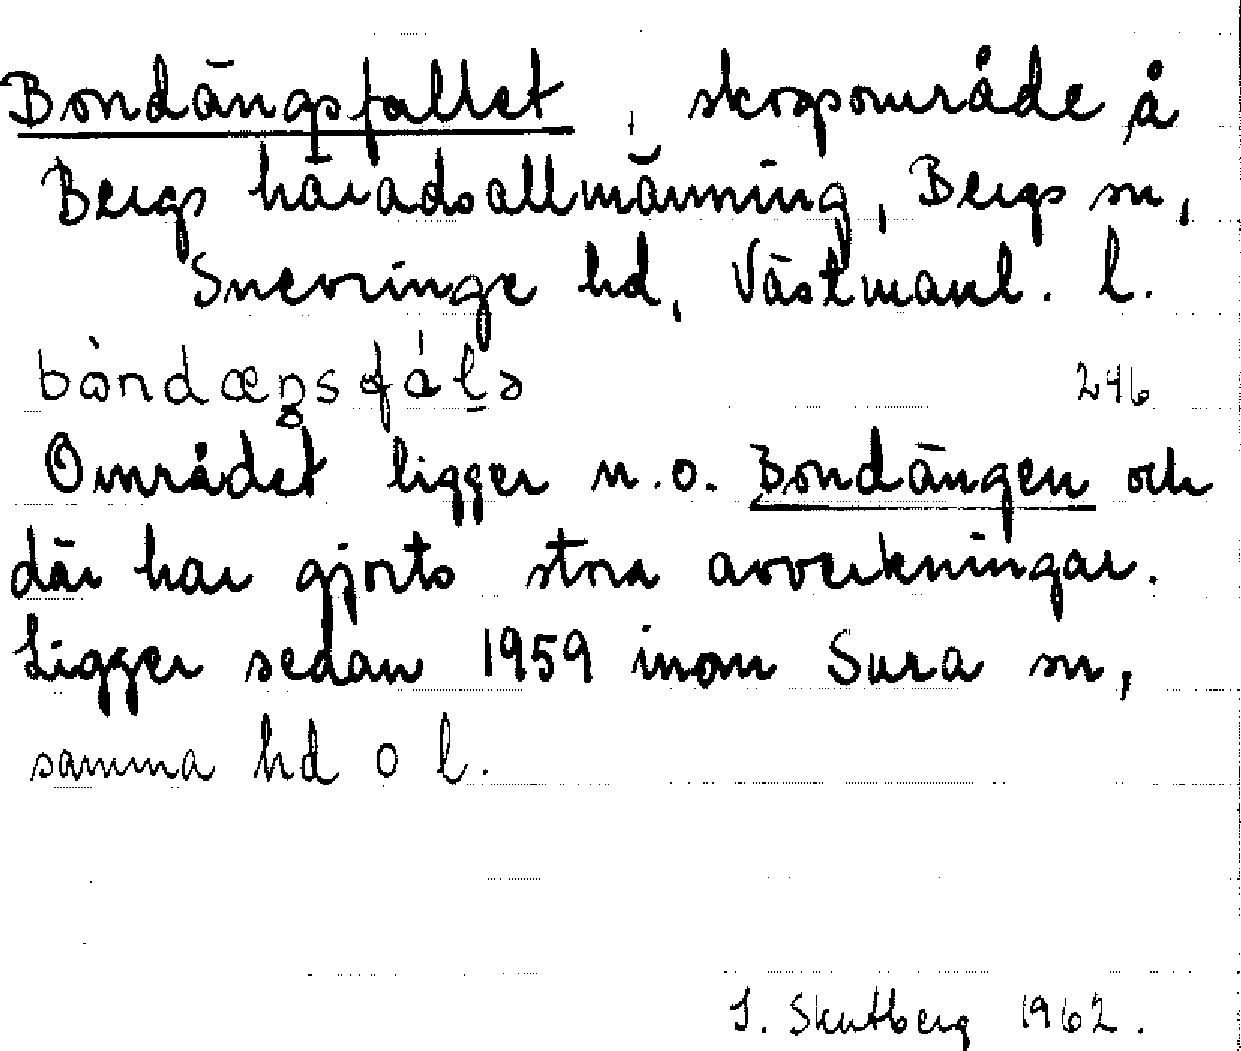 Bondängsfallet, skogsområde å
Bergs häradsallmänning, Bergs sn,
Snevringe hd, Västmanl. l.
246
Området ligger n.o. Bondängen och
där har gjorts stora avverkningar.
Ligger sedan 1959 inom Sura sn,
samma hd o l.
S. Skutberg 1962.